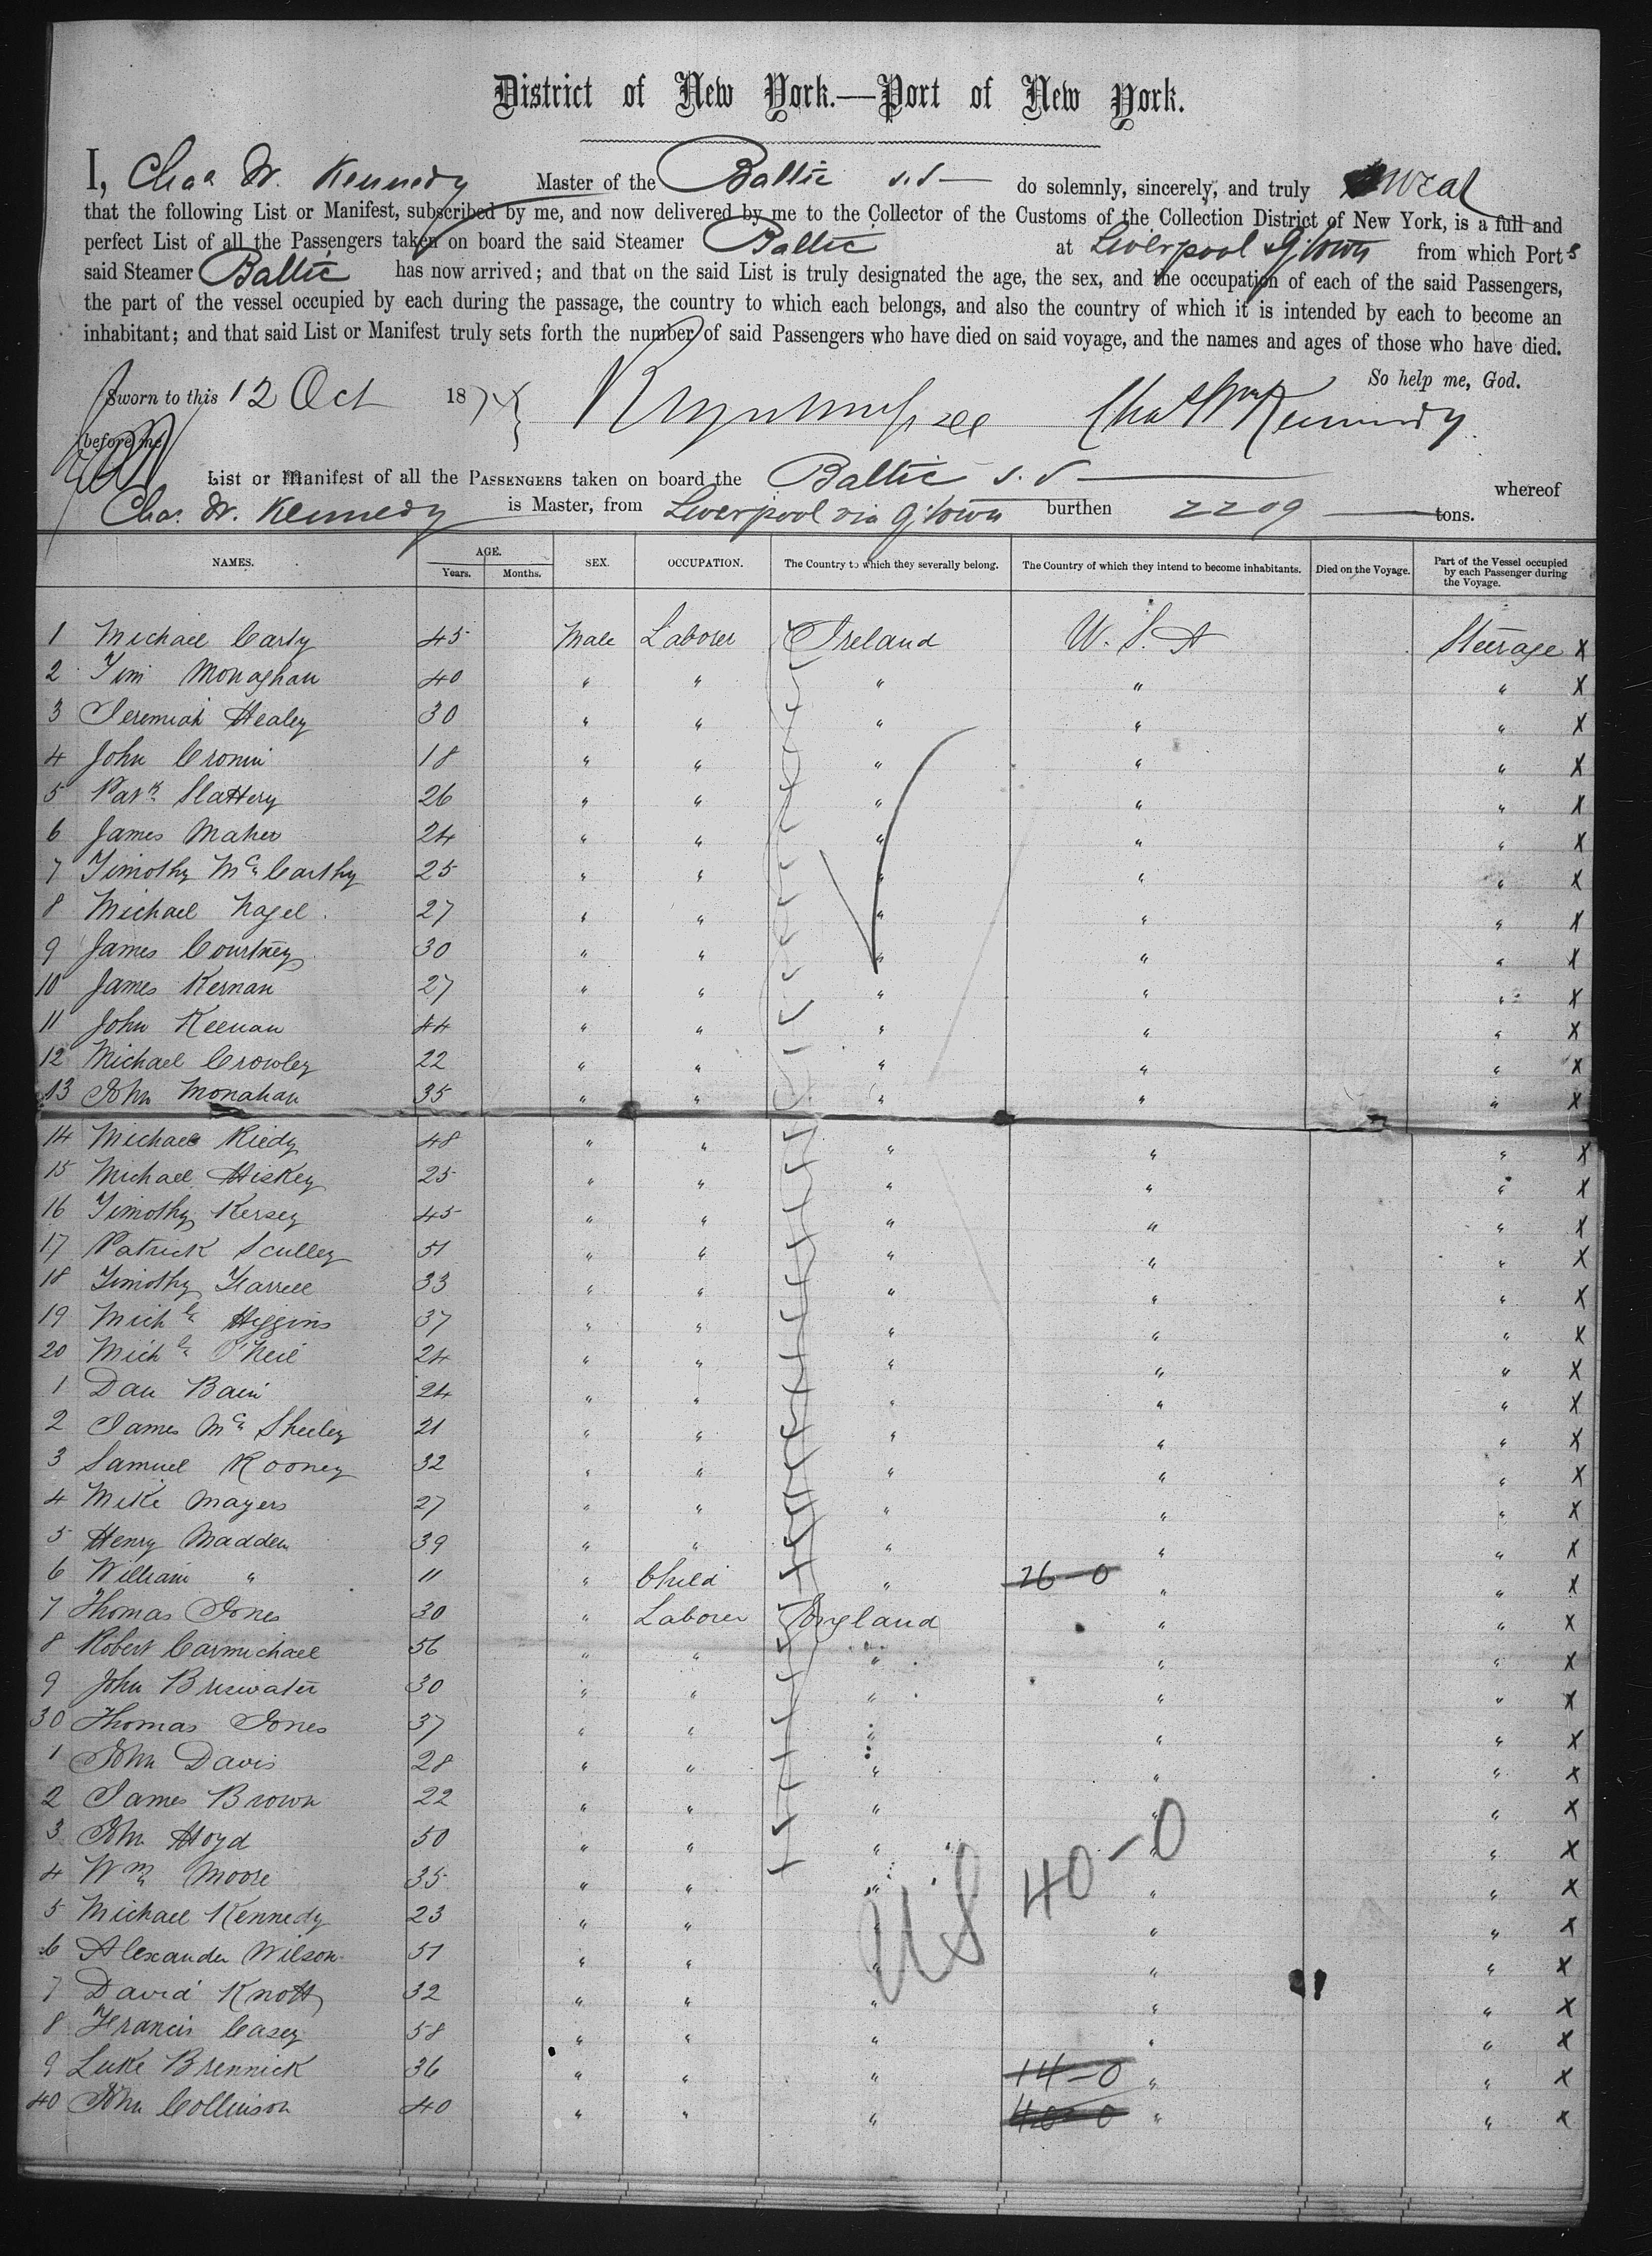 District of New York.—Port of New York.
I, Chas W. Kennedy Master of the Baltic s.s do solemnly, sincerely, and truly swear
that the following List or Manifest, subscribed by me, and now delivered by me to the Collector of the Customs of the Collection District of New York, is a full and
perfect List of all the Passengers taken on board the said Steamer Baltic at Liverpool & Q'town from which Ports
said Steamer Baltic has now arrived; and that on the said List is truly designated the age, the sex, and the occupation of each of the said Passengers,
the part of the vessel occupied by each during the passage, the country to which each belongs, and also the country of which it is intended by each to become an
inhabitant; and that said List or Manifest truly sets forth the number of said Passengers who have died on said voyage, and the names and ages of those who have died.
So help me, God.
Sworn to this 12 Oct 187 Chas W Kennedy
before me
List or Manifest of all the Passengers taken on board the Baltic s.s whereof
Chas. W. Kennedy is Master, from Liverpool via Q'town burthen 2209 tons.
NAMES. AGE. Years. Months. SEX. OCCUPATION. The Country to which they severally belong. The Country of which they intend to become inhabitants. Died on the Voyage. Part of the Vessel occupied by each Passenger during the Voyage.
1 Michael Carty 45 Male Laborer Ireland U.S.A Steerage X
2 Tim Monaghan 40 " " " " " X
3 Jeremiah Healey 30 " " " " " X
4 John Cronin 18 " " " " " X
5 Patk Slattery 26 " " " " " X
6 James Maher 24 " " " " " X
7 Timothy McCarthy 25 " " " " " X
8 Michael Nagel 27 " " " " " X
9 James Courtney 30 " " " " " X
10 James Kernan 27 " " " " " X
11 John Keenan 44 " " " " " X
12 Michael Crowley 22 " " " " " X
13 John Monahan 35 " " " " " X
14 Michael Riedy 48 " " " " " X
15 Michael Hiskey 25 " " " " " X
16 Timothy Kersey 45 " " " " " X
17 Patrick Sculley 51 " " " " " X
18 Timothy Farrell 33 " " " " " X
19 Michl Higgins 37 " " " " " X
20 Michl O'Neil 24 " " " " " X
1 Dan Bain 24 " " " " " X
2 James McSheeley 21 " " " " " X
3 Samuel Rooney 32 " " " " " X
4 Mike Mayers 27 " " " " " X
5 Henry Madden 39 " " " " " X
6 William " 11 " Child " 26-0 " " X
7 Thomas Jones 30 " Laborer England " " X
8 Robert Carmichael 56 " " " " " X
9 John 30 " " " " " X
30 Thomas Jones 37 " " " " " X
1 John Davis 28 " " " " " X
2 James Brown 22 " " " " " X
3 John 50 " " " " " X
4 Wm Moore 35 " " " " " X
5 Michael Kennedy 23 " " " " " X
6 Alexander Wilson 51 " " " " " X
7 David Knott 32 " " " " " X
8 Francis Casey 58 " " " " " X
9 Luke Brennick 36 " " " 14-0 " " X
40 John Collinson 40 " " " 40-0 " " X
US 40-0